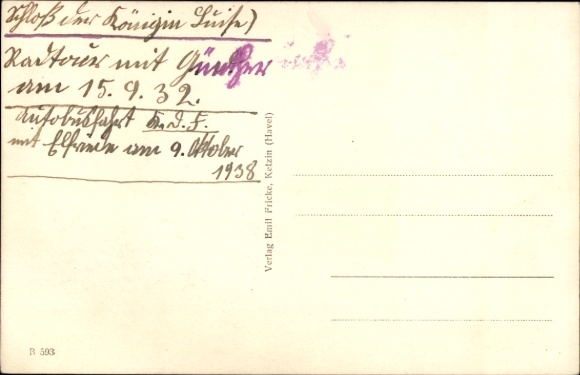 Schloß der Königin Luise)
Radtour mit Günther
am 15.9.32.
Autobusfahrt K.d.F.
mit Elfriede am 9. Oktober
1938
Verlag Emil Fricke, Ketzin (Havel)
B 593